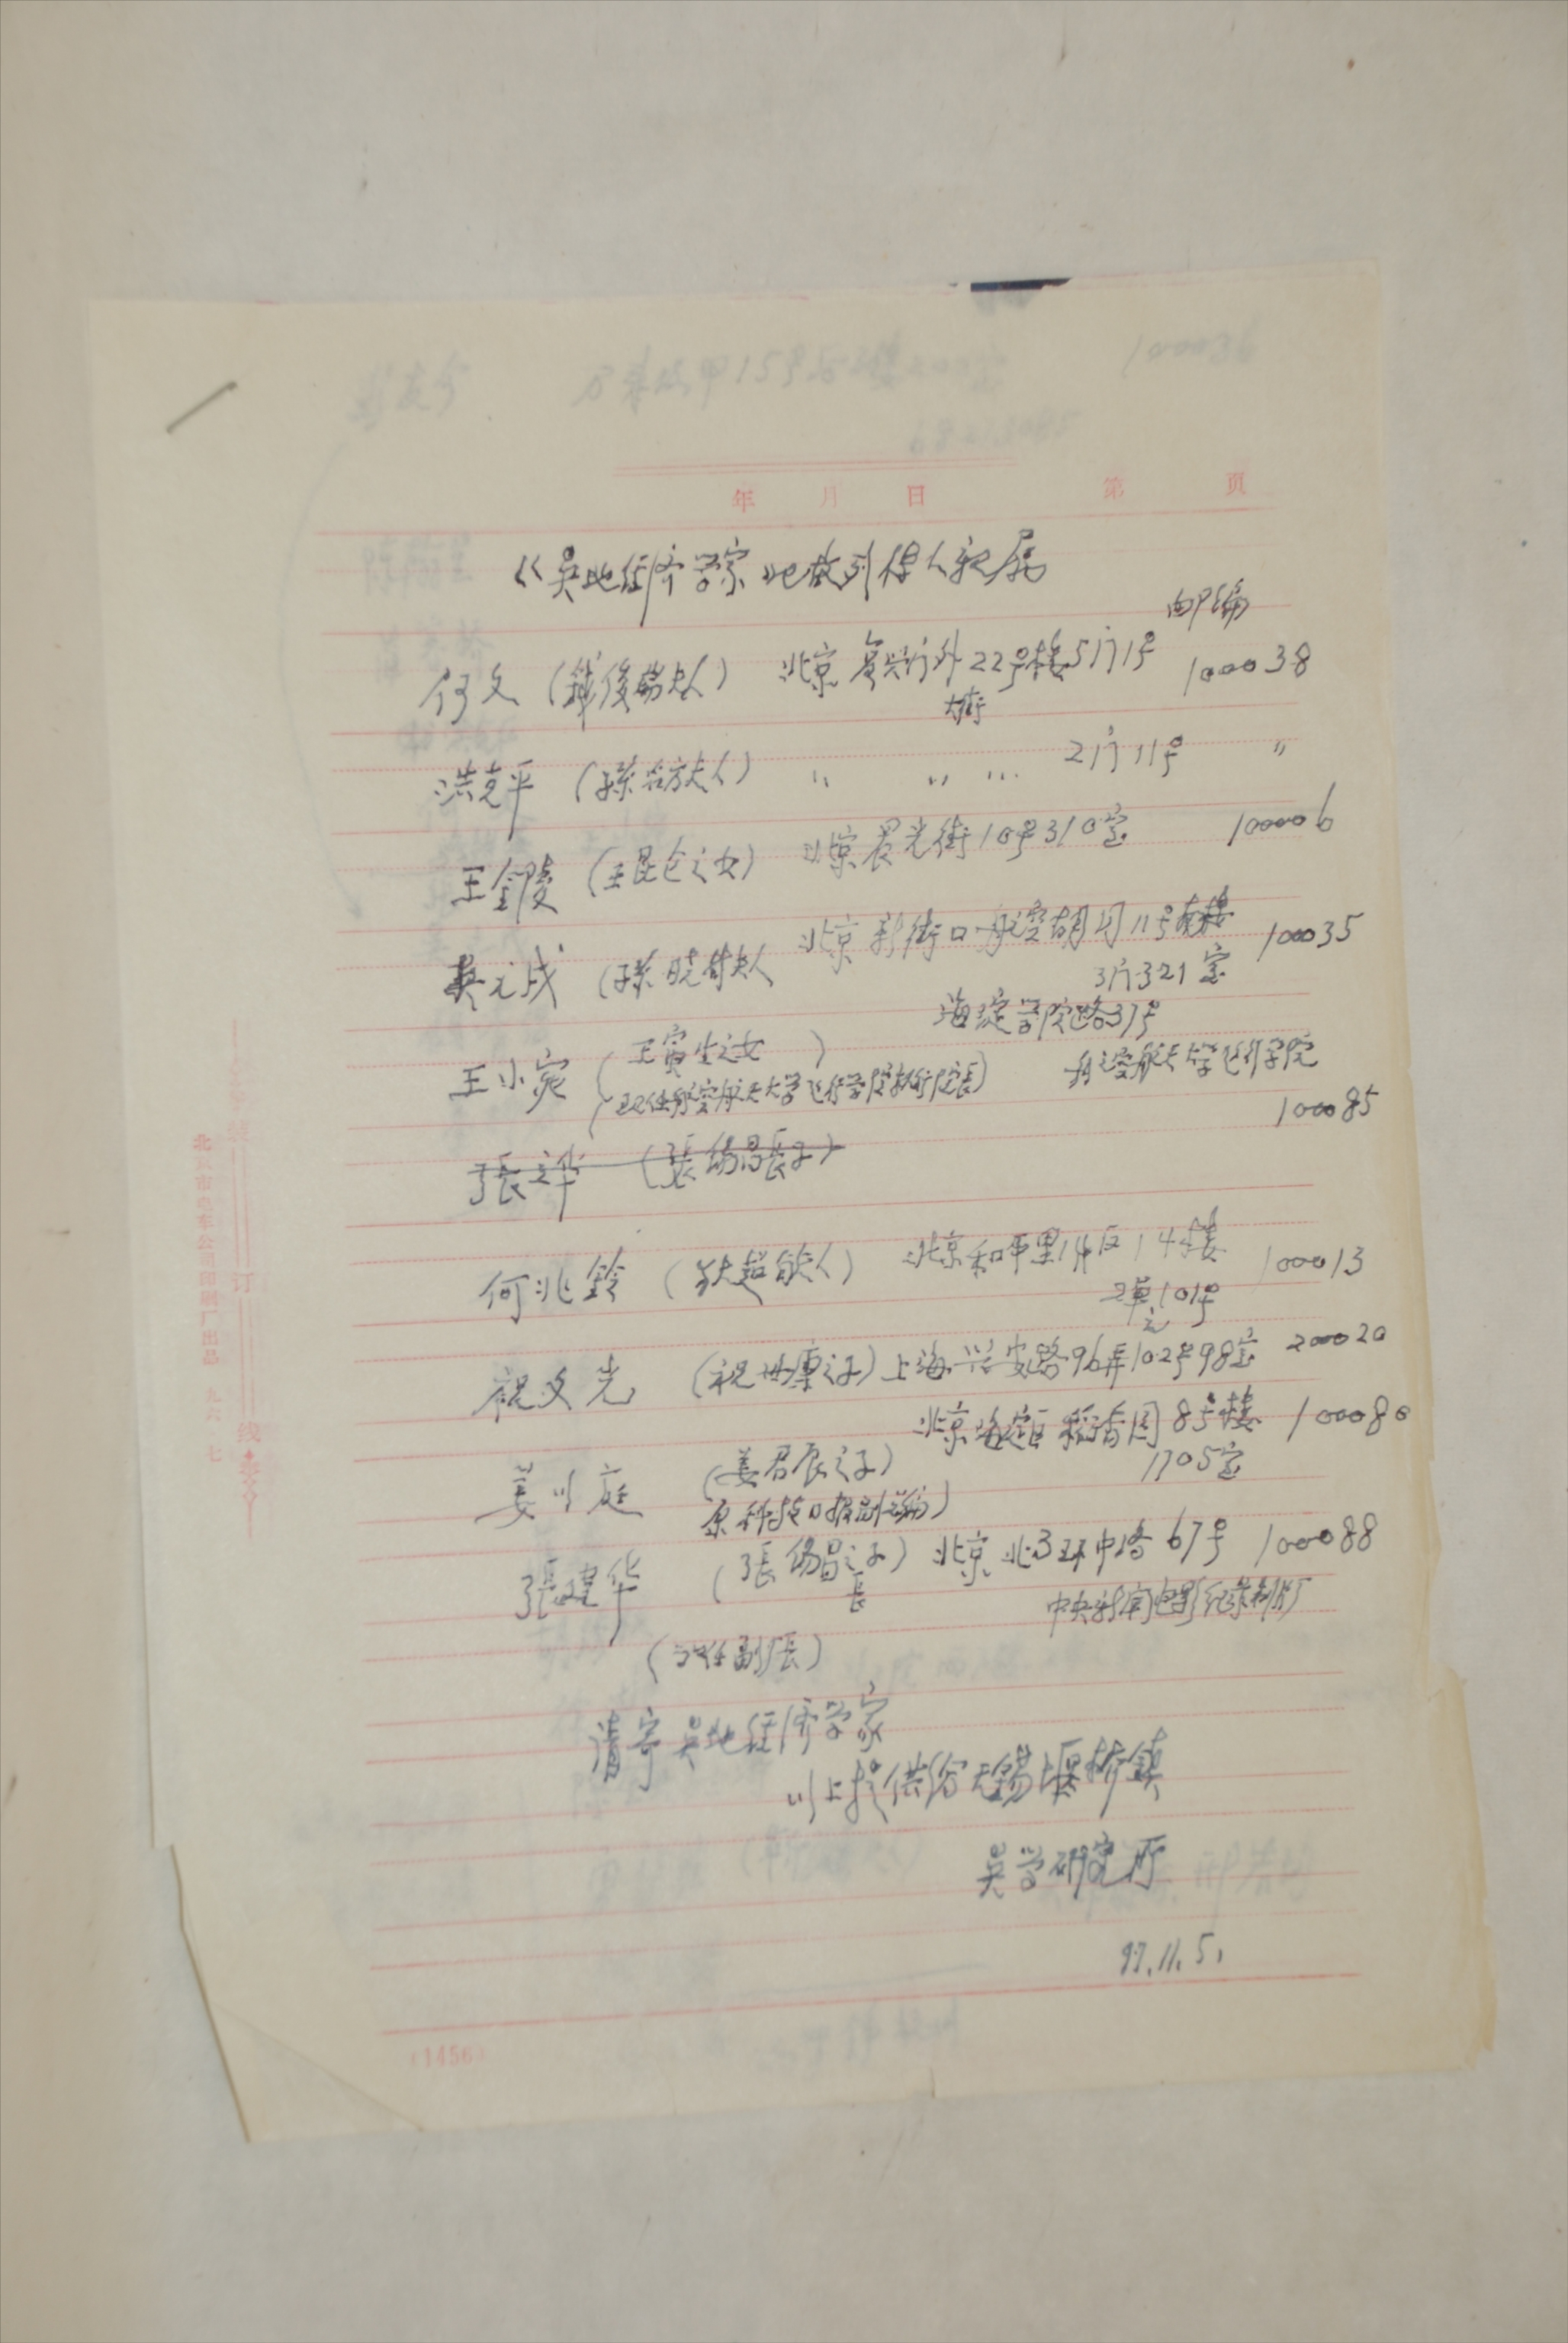 年 月 日 第 页
《吴地经济学家》已故列传人亲属
邮编
何文（薛暮桥夫人） 北京复兴门外22号楼5门1号 100038
大街
洪克平（孙冶方夫人） 〃 〃 … 2门11号 〃
王金陵（王昆仑之女） 北京晨光街10号310室 100006
吴元成（孙晓村夫人 北京新街口航空胡同11号南楼 100035
3门321室
海淀学院路37号
王小宛（王寅生之女）
（现任航空航天大学飞行学院执行院长） 航空航天大学飞行学院
100085
張之华 （張锡昌長子）
何兆鈴 （狄超夫人） 北京和平里14区14楼 100013
2单101号
元
祝文光 （祝世康之子）上海兴安路96弄102号98室 200020
北京海淀区稻香园8号楼 100080
姜川庭 （姜君辰之子） 1705室
原科技日报副总编）
張建华 （張锡昌之子）北京北3环中路67号 100088
長
中央新闻电影纪录制片厂
（现任副厂長）
请寄吴地经济学家
以上提供给无锡堰桥镇
吴学研究所
97.11.5.
订
线
北京市电车公司印刷厂出品 九六 七
(1456)